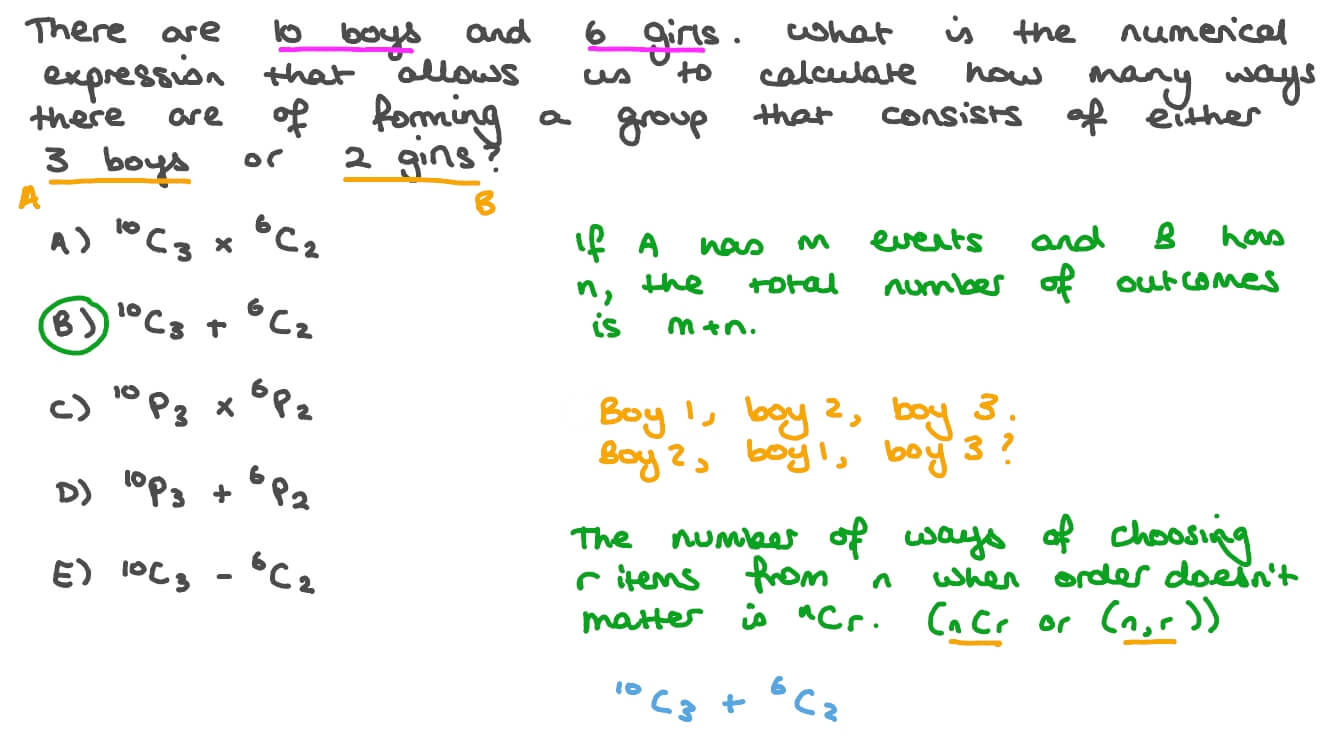 There are 10 boys and 6 girls. What is the numerical
expression that allows us to calculate how many ways
there are of forming a group that consists of either
3 boys or 2 girls?
A B
A) ¹⁰C₃ × ⁶C₂
B) ¹⁰C₃ + ⁶C₂
C) ¹⁰P₃ × ⁶P₂
D) ¹⁰P₃ + ⁶P₂
E) ¹⁰C₃ - ⁶C₂
If A has m events and B has
n, the total number of outcomes
is m+n.
Boy 1, boy 2, boy 3.
Boy 2, boy 1, boy 3?
The number of ways of choosing
r items from n when order doesn't
matter is ⁿCr. (nCr or (n,r))
¹⁰C₃ + ⁶C₂